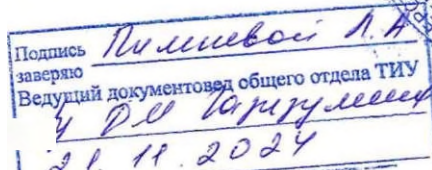 Подпись Пимневой Л.А
заверяю
Ведущий документовед общего отдела ТИУ
21.11.2024